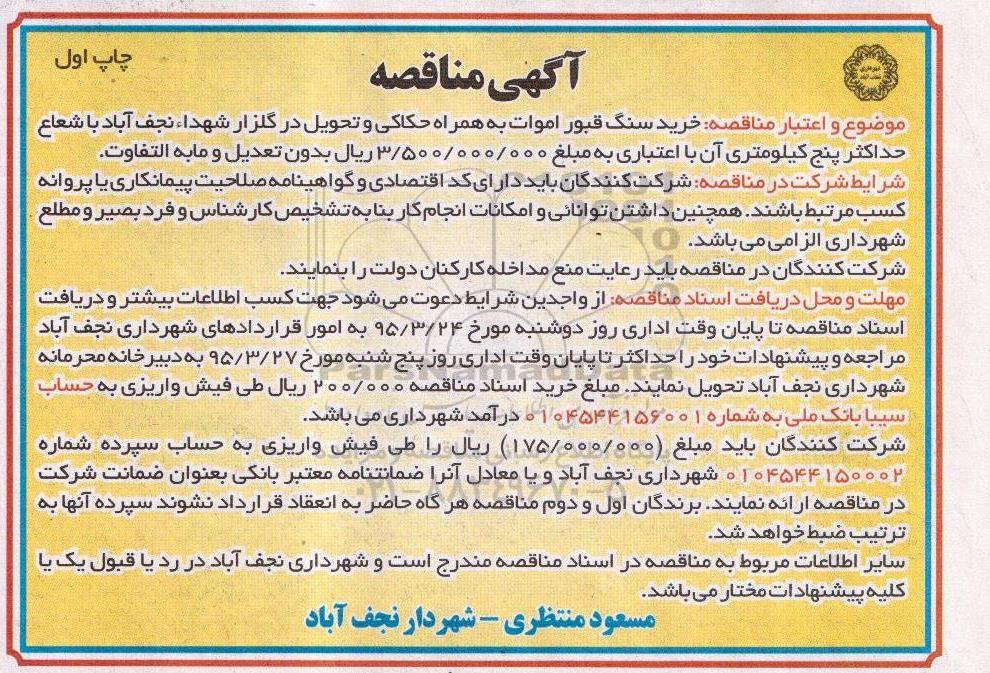 آگهی مناقصه
چاپ اول
شهرداری
نجف آباد
موضوع و اعتبار مناقصه: خرید سنگ قبور اموات به همراه حکاکی و تحویل در گلزار شهداء نجف آباد با شعاع
حداکثر پنج کیلومتری آن با اعتباری به مبلغ ۳/۵۰۰/۰۰۰/۰۰۰ ریال بدون تعدیل و مابه التفاوت.
شرایط شرکت در مناقصه: شرکت کنندگان باید دارای کد اقتصادی و گواهینامه صلاحیت پیمانکاری یا پروانه
کسب مرتبط باشند. همچنین داشتن توانائی و امکانات انجام کار بنا به تشخیص کارشناس و فرد بصیر و مطلع
شهرداری الزامی می باشد.
شرکت کنندگان در مناقصه باید رعایت منع مداخله کارکنان دولت را بنمایند.
مهلت و محل دریافت اسناد مناقصه: از واجدین شرایط دعوت می شود جهت کسب اطلاعات بیشتر و دریافت
اسناد مناقصه تا پایان وقت اداری روز دوشنبه مورخ ۹۵/۳/۲۴ به امور قراردادهای شهرداری نجف آباد
مراجعه و پیشنهادات خود را حداکثر تا پایان وقت اداری روز پنج شنبه مورخ ۹۵/۳/۲۷ به دبیرخانه محرمانه
شهرداری نجف آباد تحویل نمایند. مبلغ خرید اسناد مناقصه ۲۰۰/۰۰۰ ریال طی فیش واریزی به حساب
سیبا بانک ملی به شماره ۰۱۰۴۵۴۴۱۵۶۰۰۱ درآمد شهرداری می باشد.
شرکت کنندگان باید مبلغ (۱۷۵/۰۰۰/۰۰۰) ریال را طی فیش واریزی به حساب سپرده شماره
۰۱۰۴۵۴۴۱۵۰۰۰۲ شهرداری نجف آباد و یا معادل آنرا ضمانتنامه معتبر بانکی بعنوان ضمانت شرکت
در مناقصه ارائه نمایند. برندگان اول و دوم مناقصه هر گاه حاضر به انعقاد قرارداد نشوند سپرده آنها به
ترتیب ضبط خواهد شد.
سایر اطلاعات مربوط به مناقصه در اسناد مناقصه مندرج است و شهرداری نجف آباد در رد یا قبول یک یا
کلیه پیشنهادات مختار می باشد.
مسعود منتظری – شهردار نجف آباد
ParsNamadData